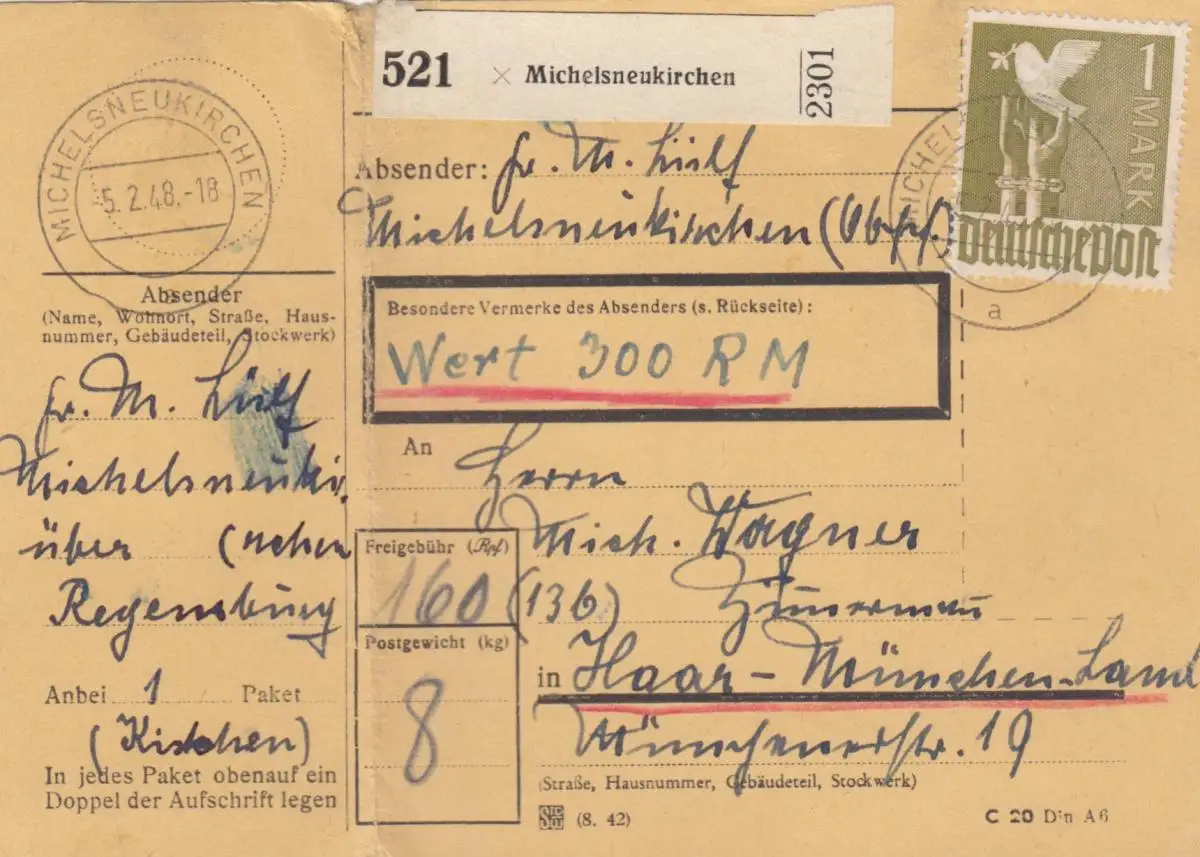 521 × Michelsneukirchen 2301
MICHELSNEUKIRCHEN
5.2.48.-18
a
1 MARK
Deutsche Post
MICHELS
a
Absender: Fr. M. Lülf
Michelsneukirchen (Obpf.)
Absender
(Name, Wohnort, Straße, Haus-
nummer, Gebäudeteil, Stockwerk)
Fr. M. Lülf
Michelsneukir.
über (rchen
Regensburg
Anbei 1 Paket
(Kistchen)
In jedes Paket obenauf ein
Doppel der Aufschrift legen
Besondere Vermerke des Absenders (s. Rückseite):
Wert 300 RM
An Herrn
Mich. Wagner
(13b) Zimmermann
in Haar - München-Land
Münchenerstr. 19
(Straße, Hausnummer, Gebäudeteil, Stockwerk)
Freigebühr (Rpf)
160
Postgewicht (kg)
8
(8. 42)
C 20 Din A6